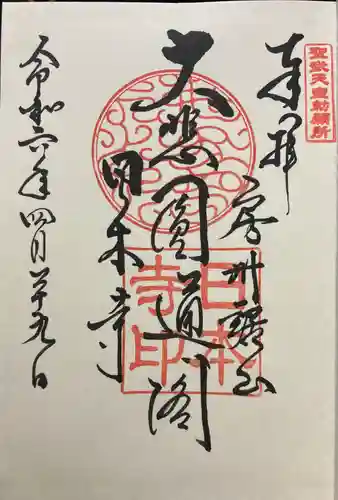 聖武天皇勅願所
奉拝
房州鋸山
大悲圓通閣
日本寺
日本寺印
令和六年四月廿九日